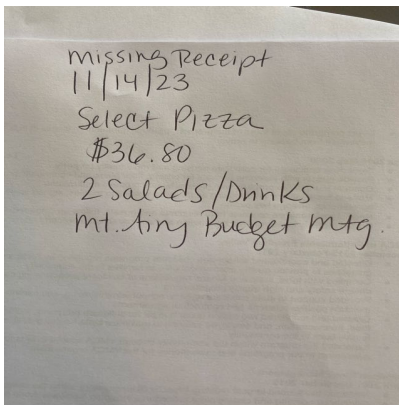 missing Receipt
11/14/23
Select Pizza
$36.80
2 Salads/Drinks
mt. Airy Budget mtg.